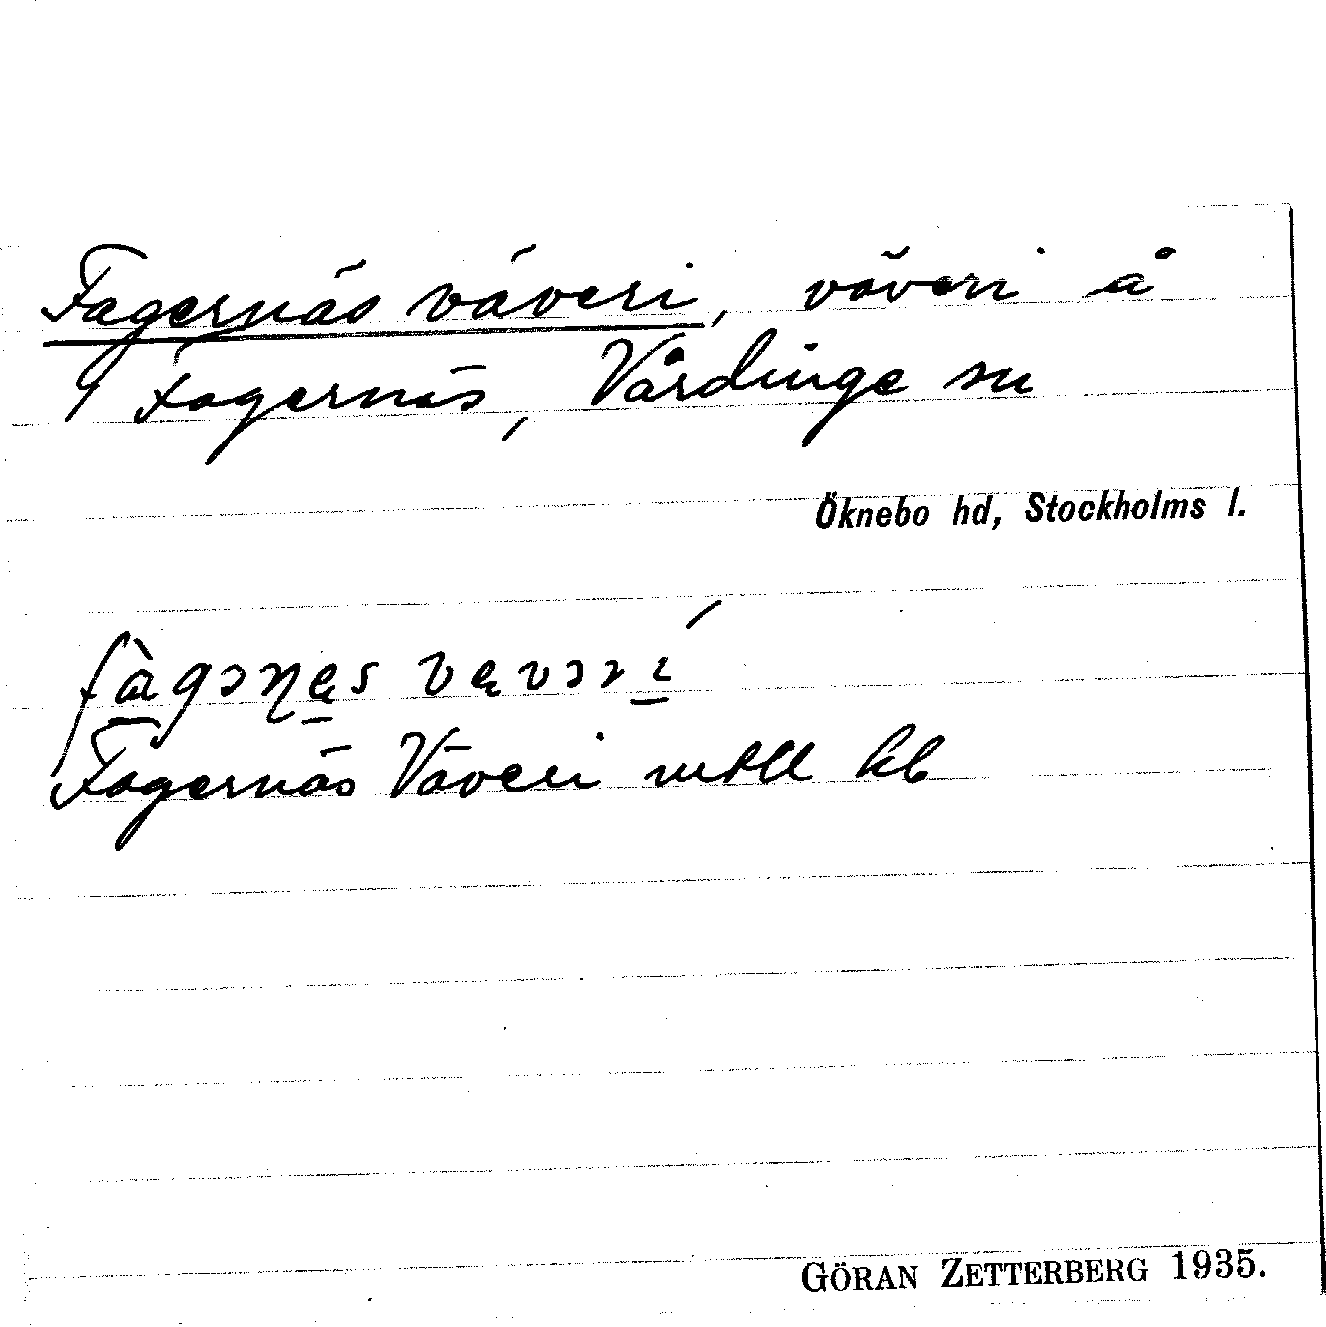 Fagernäs väveri, väveri å
Fagernäs, Vårdinge sn
Öknebo hd, Stockholms l.
fàgəɳęs vęvərí
Fagernäs Väveri mtll kb
GÖRAN ZETTERBERG 1935.